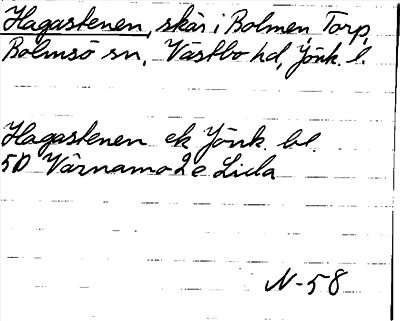 Hagastenen, skär i Bolmen, Torp,
Bolmsö sn, Västbo hd, Jönk. l.
Hagastenen ek Jönk. bl.
5D Värnamo 2 e Lida
N-58